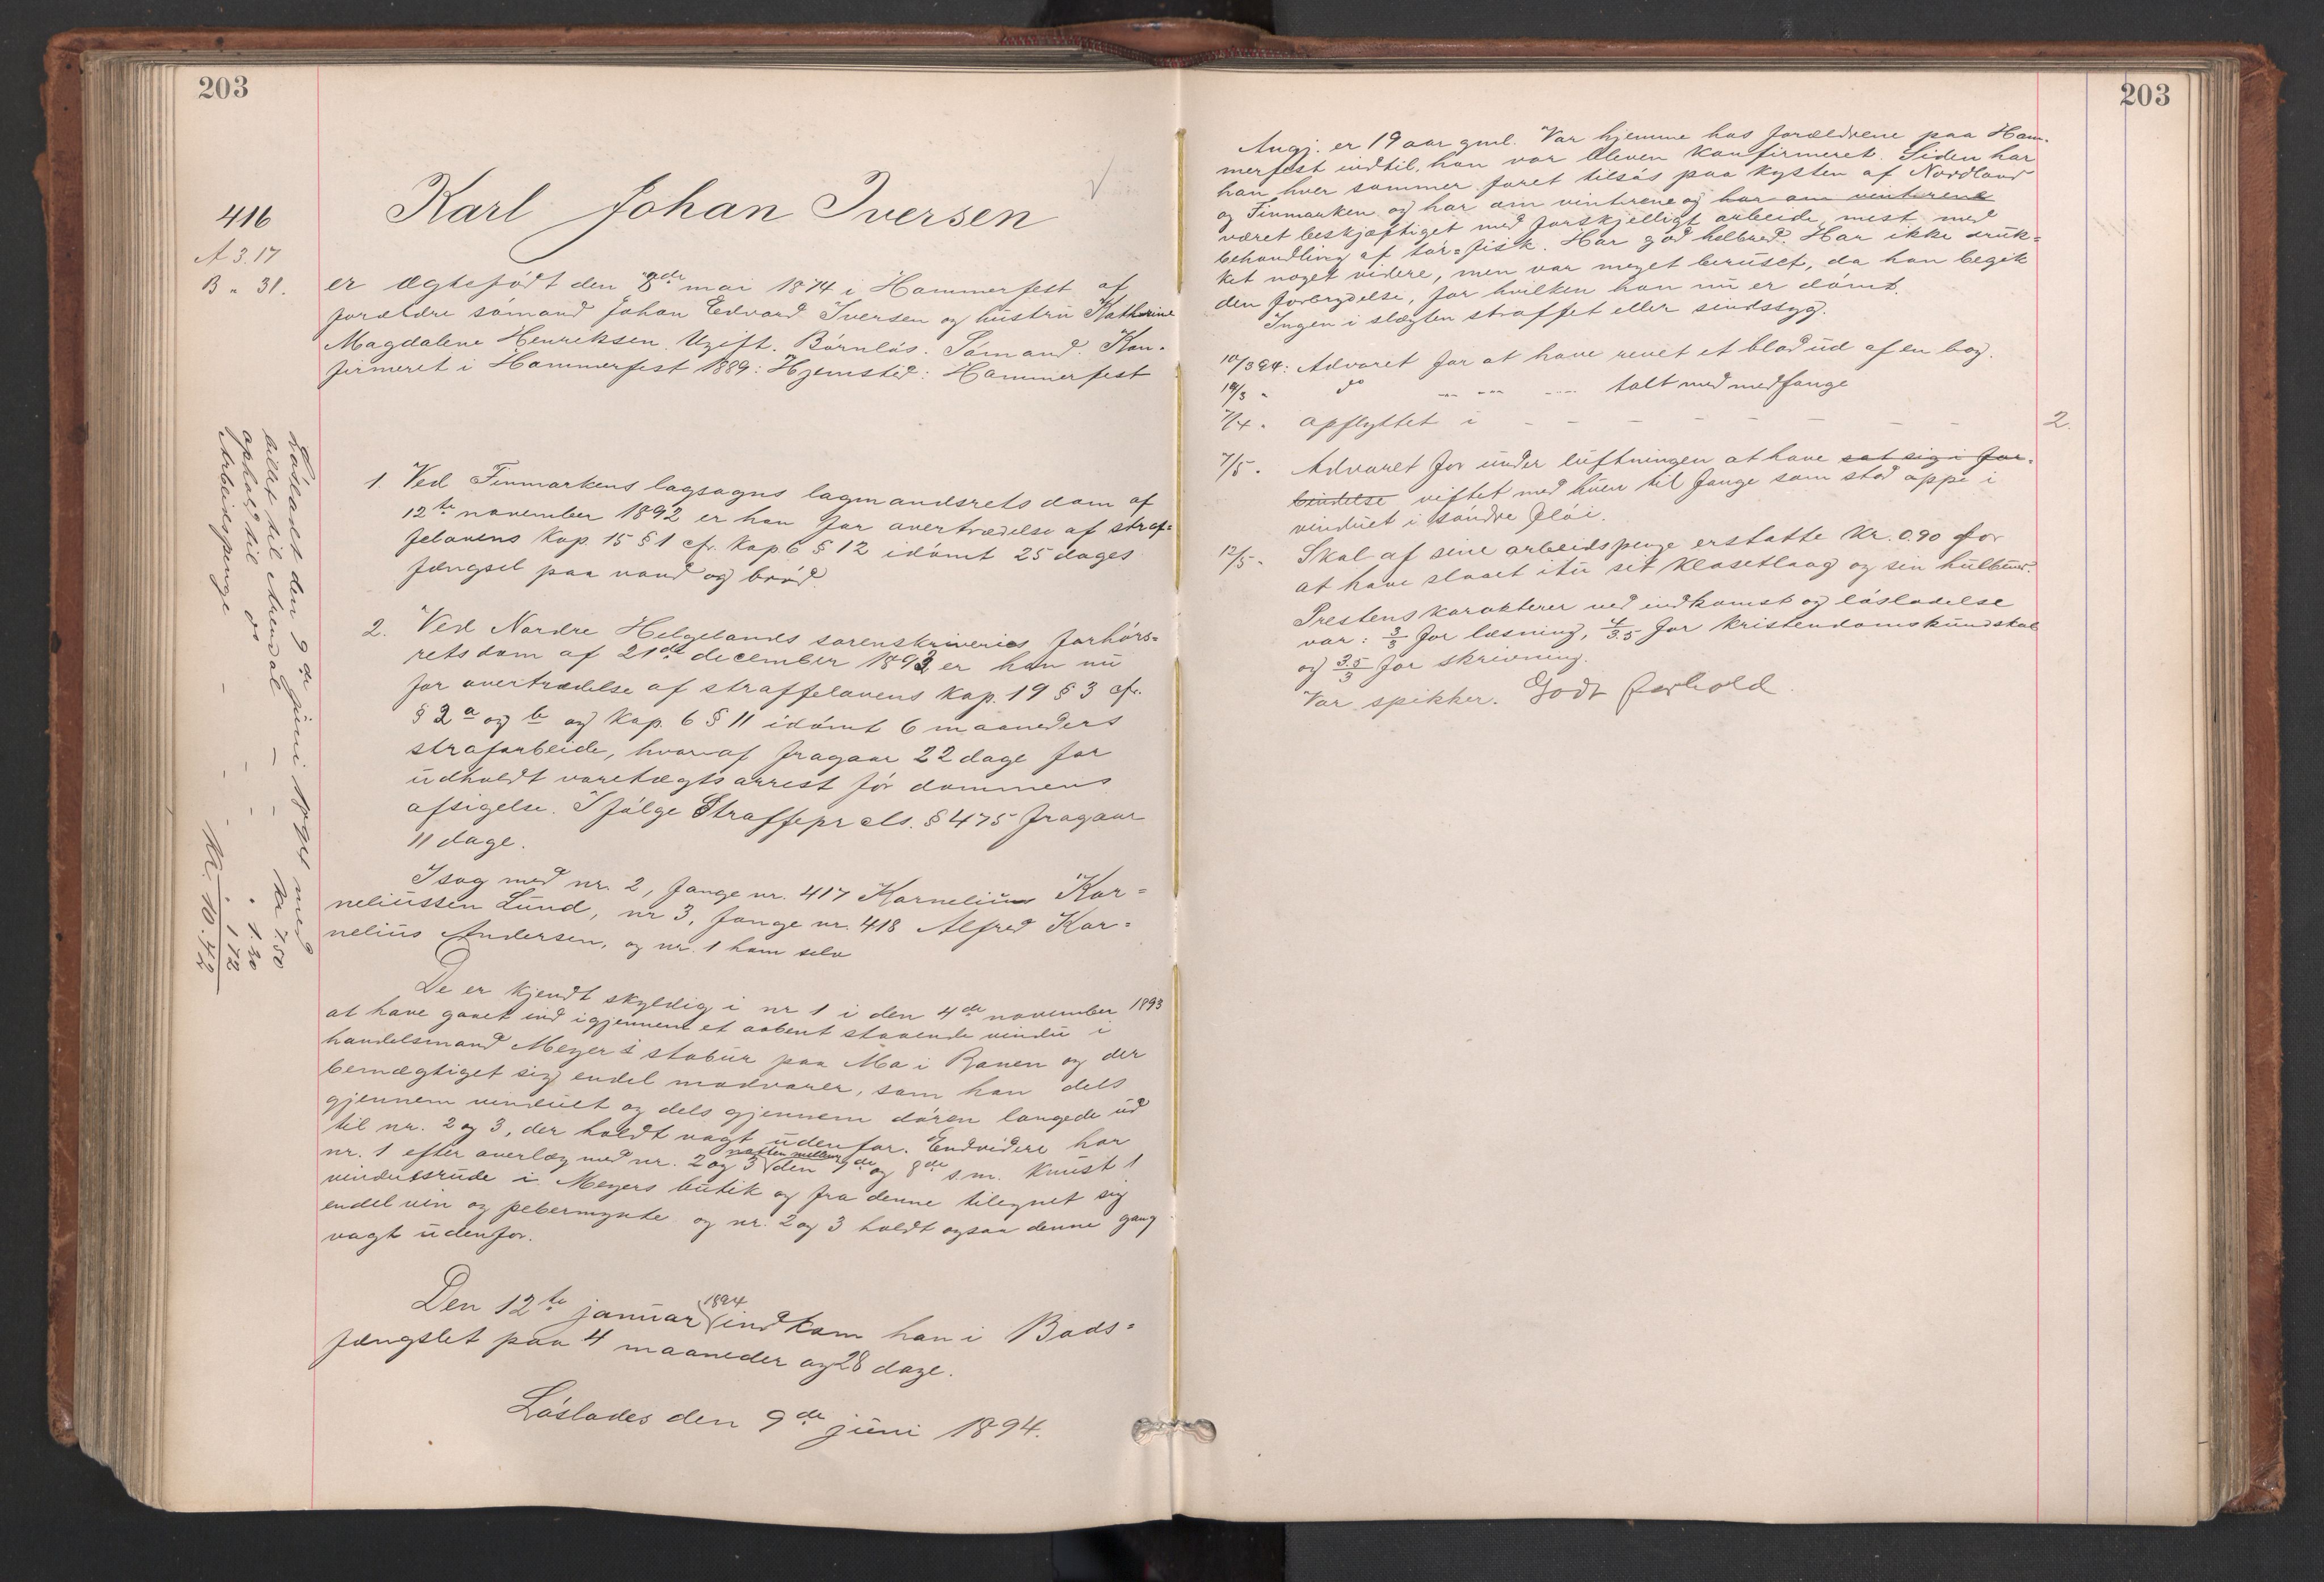 203
416
A 3. 17
B " 31.
Karl Johan Iversen
er ægtefødt den 8de mai 1874 i Hammerfest af
forældre sømand Johan Edvard Iversen og hustru Kathrine
Magdalene Henriksen. Ugift. Børnløs. Sømand. Kon-
firmeret i Hammerfest 1889: Hjemsted: Hammerfest
1. Ved Finmarkens lagsogns lagmandsrets dom af
12te november 1892 er han for overtrædelse af straf-
felovens Kap. 15 § 1 cfr. Kap. 6 § 12 idømt 25 dages
fængsel paa vand og brød
2. Ved Nordre Helgelands sorenskriveries forhørs-
rets dom af 21de december 1893 er han nu
for overtrædelse af straffelovens Kap. 19 § 3 cfr.
§ 2 a og b og Kap. 6 § 11 idømt 6 maaneders
strafarbeide, hvoraf fragaar 22 dage for
udholdt varetægtsarrest før dommens
afsigelse. Ifølge Straffeprcls. § 475 fragaar
11 dage.
I sag med nr. 2, fange nr. 417 Kornelius Kor-
neliussen Lund, nr 3, fange nr. 418 Alfred Kor-
nelius Andersen, og nr. 1 ham selv
De er kjendt skyldig i nr 1 i den 4de november 1893
at have gaaet ind igjennem et aabent staaende vindu i
handelsmand Meyers stabur paa Mo i Ranen og der
bemægtiget sig endel madvarer, som han dels
gjennem vinduet og dels gjennem døren langede ud
til nr. 2 og 3, der holdt vagt udenfor. Endvidere har
nr. 1 efter overlæg med nr. 2 og 3 natten mellem den 7de og 8de s.m. knust 1
vinduesrude i Meyers butik og fra denne tilegnet sig
endel vin og pebermynte og nr. 2 og 3 holdt ogsaa denne gang
vagt udenfor.
Den 12te januar 1894 indkom han i Bods-
fængslet paa 4 maaneder og 28 dage.
Løslades den 9de juni 1894.
Løsladt den 9de juni 1894 med
billet til Arendal - - Kr. 7.50
ophold til do - - " 1.20
Arbeidspenge - - - " 1.72
Kr. 10.42
203
Angj. er 19 aar gml. Var hjemme hos forældrene paa Ham-
merfest indtil, han var bleven konfirmeret. Siden har
han hver sommer faret tilsøs paa kysten af Nordland
og Finmarken og har om vinterene og har om vinterene
været beskjæftiget med forskjelligt arbeide, mest med
behandling af tør-fisk. Har god helbred. Har ikke druk-
ket noget videre, men var meget beruset, da han begik
den forbrydelse, for hvilken han nu er dømt.
Ingen i slægten straffet eller sindssyg.
10/3 94: Advaret for at have revet et blad ud af en bog.
19/3 - do - - - talt med medfange
7/4 - Opflyttet i - - - - - - - 2.
7/5 - Advaret for under luftningen at have sat sig i for-
bindelse viftet med huen til fange som stod oppe i
vinduet i søndre fløi.
12/5 - Skal af sine arbeidspenge erstatte Kr. 0.90 for
at have slaaet itu sit klosetlaag og sin
Prestens karakterer ved indkomst og løsladelse
var: 3/3 for læsning, 4/3.5 for kristendomskundskab
og 3.5/3 for skrivning.
Var spikker. Godt forhold.